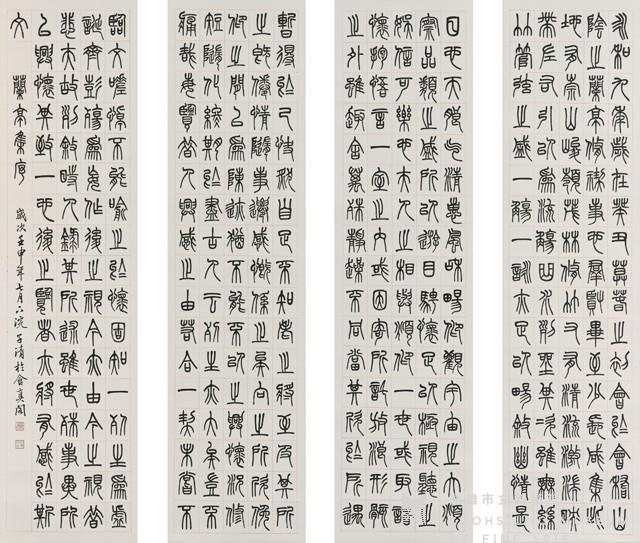 永和九年歲在癸丑暮春之初會於會稽山
陰之蘭亭修禊事也群賢畢至少長咸集此
地有崇山峻領茂林修竹又有清流激湍映
帶左右引以為流觴曲水列坐其次雖無絲
竹管弦之盛一觴一詠亦足以暢敘幽情是
日也天朗氣清惠風和暢仰觀宇宙之大俯
察品類之盛所以遊目騁懷足以極視聽之
娛信可樂也夫人之相與俯仰一世或取諸
懷抱悟言一室之內或因寄所託放浪形骸
之外雖趣舍萬殊靜躁不同當其欣於所遇
暫得於己快然自足不知老之將至及其所
之既倦情隨事遷感慨係之矣向之所欣俛
仰之間以為陳跡猶不能不以之興懷況修
短隨化終期於盡古人云死生亦大矣豈不
痛哉每覽昔人興感之由若合一契未嘗不
臨文嗟悼不能喻之於懷固知一死生為虛
誕齊彭殤為妄作後之視今亦由今之視昔
悲夫故列敘時人錄其所述雖世殊事異所
以興懷其致一也後之覽者亦將有感於斯
文 蘭亭集序
歲次壬申年七月 浣子清於會真閣
雄市立
FINE ARTS